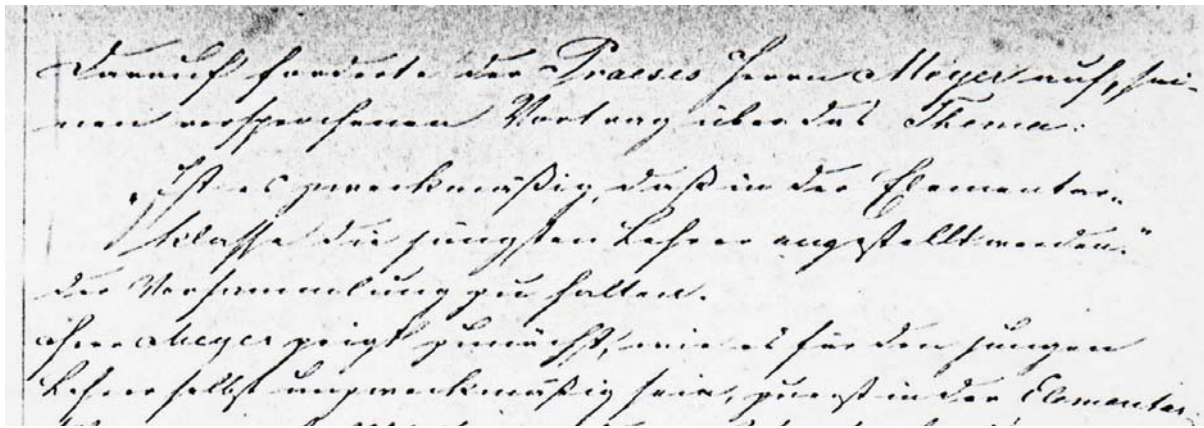 Darauf forderte der Praeses Herrn Meyer auf, sei-
nen versprochenen Vortrag über das Thema:
„Ist es zweckmäßig, daß in der Elementar-
klasse die jüngsten Lehrer angestellt werden“
der Versammlung zu halten.
Herr Meyer zeigt zunächst, wie es für den jungen
Lehrer selbst unzweckmäßig sei, zuerst in der Elementar-